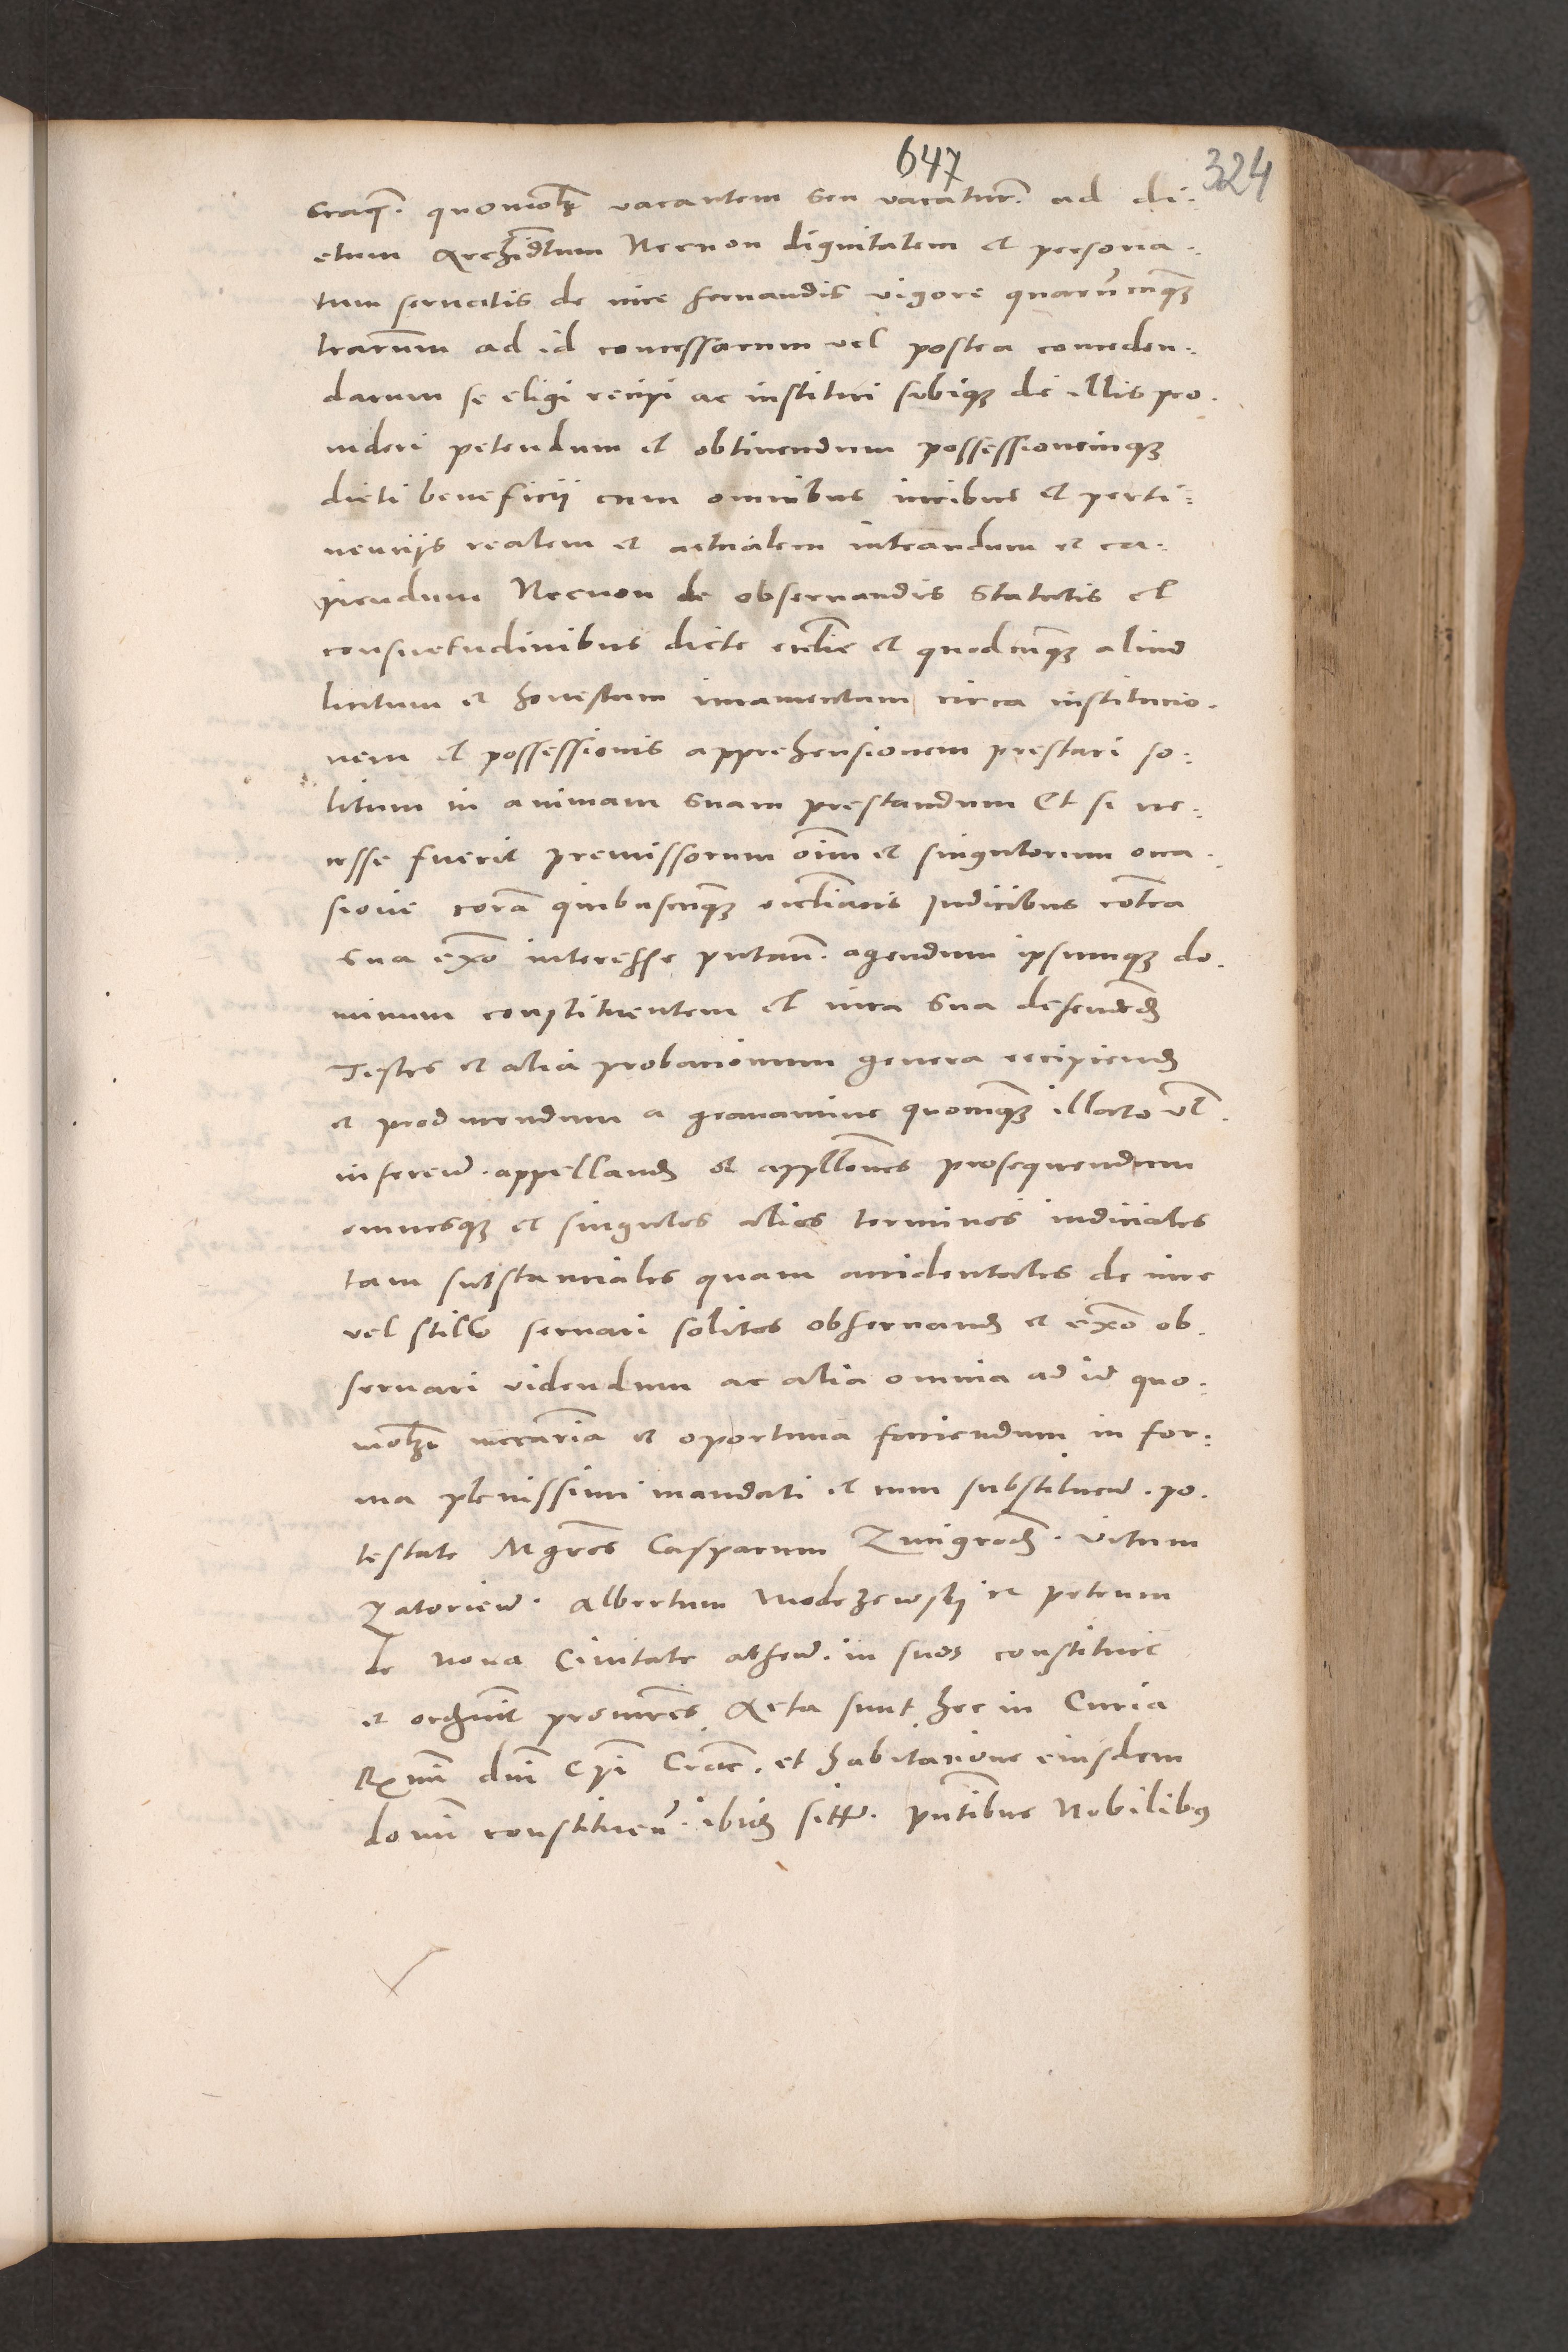 647
324
quomodolibet vacantem seu vacatur. ad di-
ctum Archidtum Necnon dignitatem et persona-
tum servatis de iure servandis vigore quarumcumque
lrarum ad id concessarum vel postea conceden-
darum se eligi recipi ac institui sibique de illis pro-
videri petendum et obtinendum possessionemque
dicti beneficii cum omnibus iuribus et perti-
nenciis realem et actualem intrandum et ca-
piendum Necnon de observandis Statutis et
consuetudinibus dicte ecclie et quodcumque aliud
licitum et honestum iuramentum circa institucio-
nem et possessionis apprehensionem prestari so-
litum in animam suam prestandum Et si ne-
cesse fuerit premissorum oim et singulorum occa-
sione coram quibuscumque Iudicibus contra
sua exo interesse putan. agendum ipsumque do-
minum constituentem et iura sua defendend
Testes et alia probacionum genera recipiend
et producendum a gravamine quocumque illato vel
inferend. appelland et appellones prosequendum
omnesque et singulos alios terminos iudiciales
tam substanciales quam accidentales de iure
vel stilo servari solitos observand et exo ob-
servari videndum ac alia omnia ad id quo-
molibet necraria et oportuna faciendum in for-
ma plenissimi mandati et cum substituend. po-
testate Mgros Casparum Zmigrod. Vitum
Zatoriend. Albertum Modrzewsky et petrum
de nova Civitate absend. in suos constituit
et ordinavit procures. Acta sunt hec in Curia
Rxmi dni Epi Crac. et habitatione eiusdem
domi constituen. ibidem sitt. pntibus Nobilibus